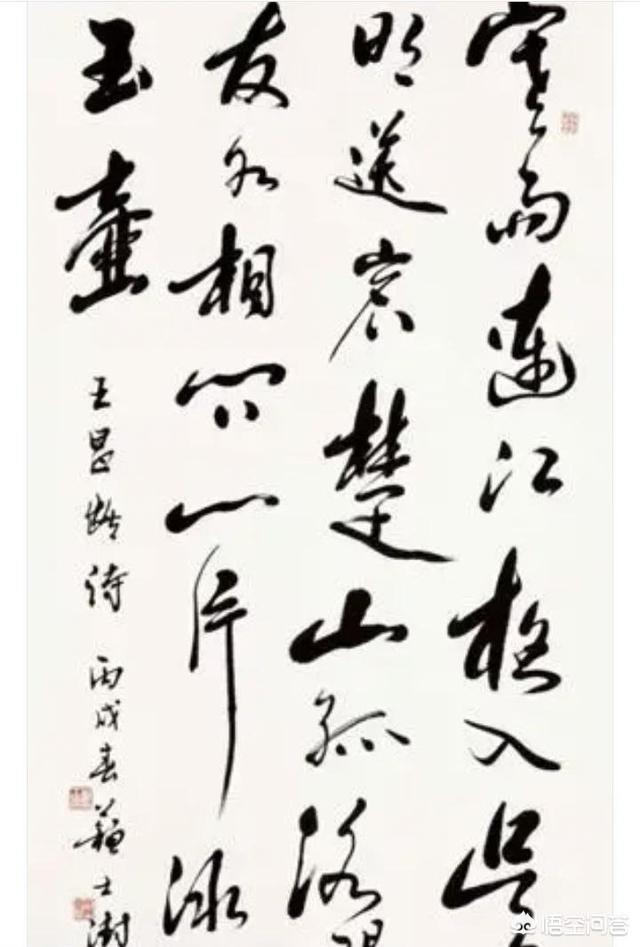 寒雨連江夜入吴
明送客楚山孤洛陽
友如相问一片冰
玉壺
王昌齡詩 丙戌春蘇士澍
悟空问答